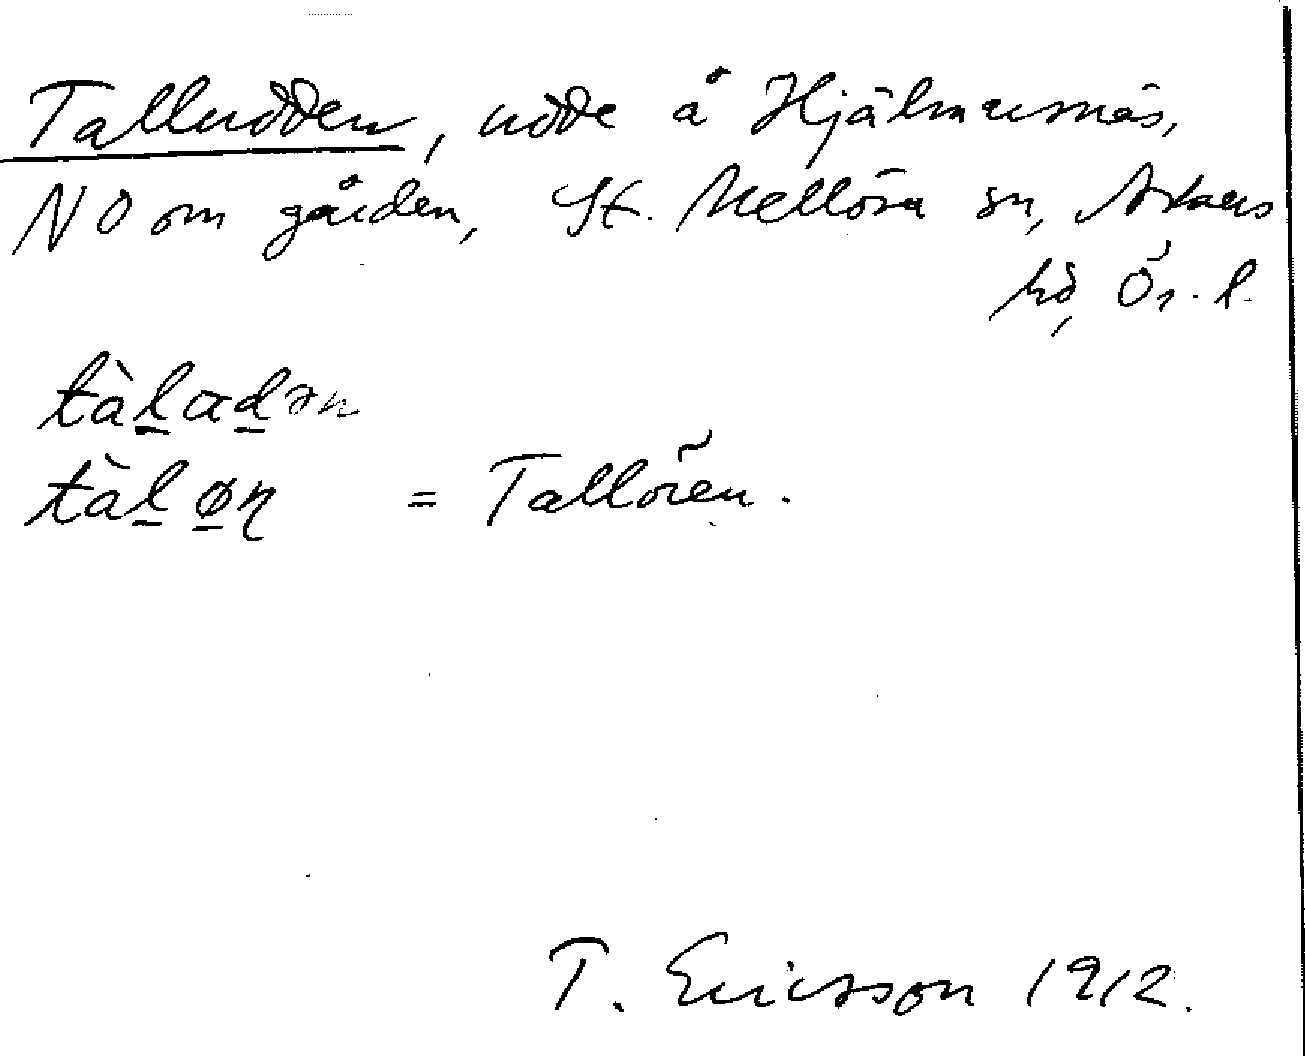 Talludden, udde å Hjälmarsnäs,
NO om gården, St. Mellösa sn, Askers
hd, Ör. l.
tàḻaḏən
tàḻø̱ɳ = Tallören.
T. Ericsson 1912.